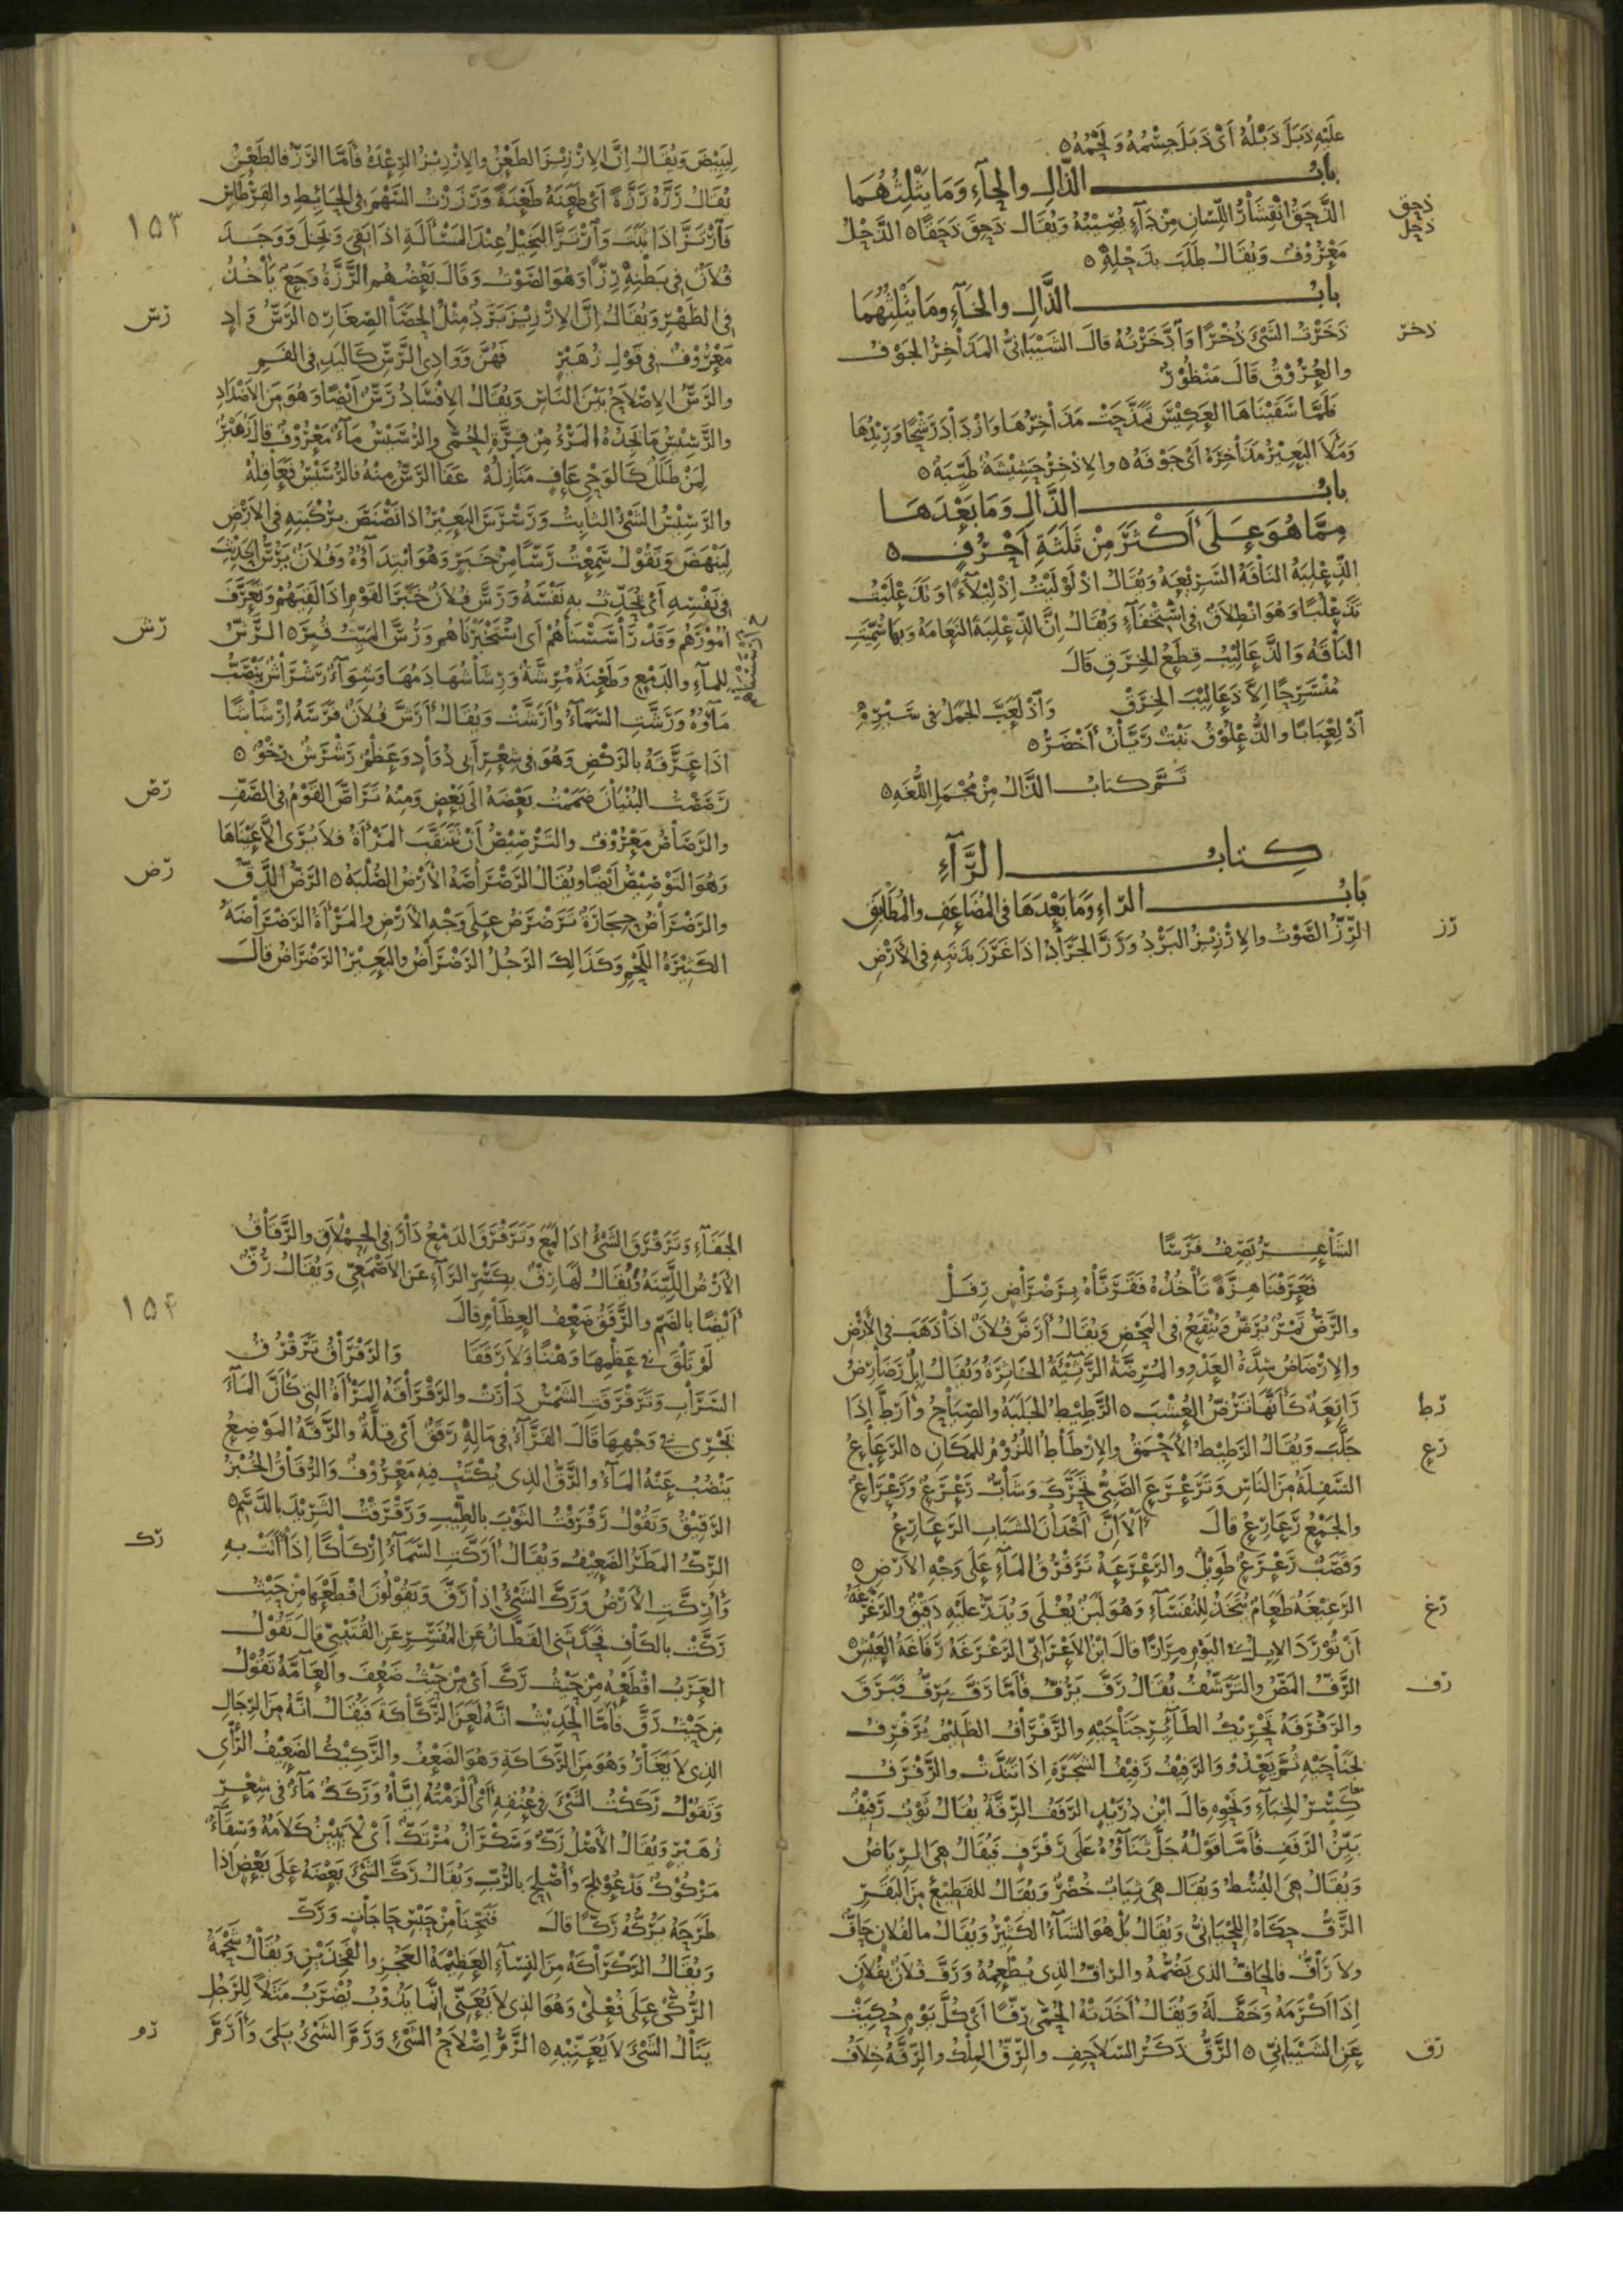 عليه ذبل ذبله اى ذبل جسمه ولحمه ٥
باب الذال والحآء وما يثلثهما
ذحق
ذحل
الذحق انقشار اللسان من دآء يصيبه ويقال ذحق ذحقا ٥ الذحل
معروف ويقال طلب بذحله ٥
باب الذال والخآء وما يثلثهما
ذخر
ذخرت الشئ ذخرا واذخرته قال الشيبانى المذاخر الجوف
والعروق قال منظور
فلما سقيناها العكيس تمذحت مذاخرها وازداد رشحا وريدها
وملا البعير مذاخره اى جوفه ٥ والاذخر حشيشة طيبة ٥
باب الذال وما بعدها
مما هو على اكثر من ثلثة احرف ٥
الذعلبة الناقة السريعة ويقال اذلوليت اذليلآء وتذعلبت
تذعلبا وهو انطلاق فى استخفآء ويقال ان الذعلبة النعامة وبها سميت
الناقة والذعاليب قطع الخرق قال
منسرحا الا ذعاليب الخرق واذلعب الجمل فى سيره
اذلعبابا والذعلوق نبت ريان اخضر ٥
تم كتاب الذال من مجمل اللغة ٥
كتاب الرآء
باب الراء وما بعدها فى المضاعف والمطابق
رز
الرز الصوت والارزيز البرد ورز الجراد اذا غرز بذنبه فى الارض
ليبيض ويقال ان الارزيز الطعن والارزيز الرعدة فاما الرز فالطعن
يقال رزه رزة اى طعنه طعنة ورززت السهم فى الحائط والقرطاس
١٥٣
فارتز اذا ثبت وارتز البخيل عند المسئلة اذا بقى وبخل ووجد
فلان فى بطنه رزا وهو الصوت وقال بعضهم الرزة وجع ياخذ
رس
فى الظهر ويقال ان الارزيز برد مثل الحصا الصغار ٥ الرس واد
معروف فى قول زهير فهن ووادى الرس كاليد فى الفم
والرس الاصلاح بين الناس ويقال الافساد رس ايضا وهو من الاضداد
والرسيس ما يجده المرء من فترة الحمى والرسيس مآء معروف قال زهير
لمن طلل كالوحى عاف منازله عفا الرس منه فالرسيس فعاقله
والرسيس الشئ الثابت ورسرس البعير اذا نضنض بركبته فى الارض
لينهض وتقول سمعت رسا من خبر وهو ابتداؤه وفلان يرس الحديث
فى نفسه اى يحدث به نفسه ورس فلان خبر القوم اذا لقيهم وتعرف
رش
امورهم وقد راسسناهم اى استخبرناهم ورس الميت قبر ٥ الرش
للمآء والدمع وطعنة مرشة ورشاشها دمها وشوآء رشراش ينصب
مآؤه ورشت السمآء وارشت ويقال ارش فلان فرسه ارشاشا
اذا عرقه بالركض وهو فى شعر ابى دواد وعظم رشرش رخو ٥
رص
رصصت البنيان ضممت بعضه الى بعض ومنه تراص القوم فى الصف
والرصاص معروف والترصيص ان تنتقب المرأة فلا يرى الا عيناها
رض
وهو التوصيص ايضا ويقال الرصراصة الارض الصلبة ٥ الرض الدق
والرضراض حجارة ترضرض على وجه الارض والمرأة الرضراضة
الكثيرة اللحم وكذلك الرجل الرضراض والبعير الرضراض قال
الشاعر يصف فرسا
فعرفنا هزة تاخذه فقرناه برضراض رفل
والرض تمر يرض وينقع فى المحض ويقال ارض فلان اذا ذهب فى الارض
والارضاض شدة العدو والمرضة الرثيئة الخاثرة ويقال ابل رضارض
رط
راتعة كانها ترض العشب ٥ الرطيط الجلبة والصياح وارط اذا
رع
جلب ويقال الرطيط الاحمق والارطاط اللزوم للمكان ٥ الرعاع
السفلة من الناس وترعرع الصبى تحرك وشاب رعرع ورعراع
والجمع رعارع قال الا ان اخدان الشباب الرعارع
وقصب رعرع طويل والرعرعة ترقرق المآء على وجه الارض ٥
رغ
الرغيغة طعام يتخذ للنفسآء وهو لبن يغلى ويذر عليه دقيق والرغرغة
ان تورد الابل فى اليوم مرارا قال ابن الاعرابى الرغرغة رفاغة العيش ٥
رف
الرف المص والترشف يقال رف يرف فاما رف يرف فبرق
والرفرفة تحريك الطائر جناحيه والرفراف الظليم يرفرف
بجناحيه ثم يعدو والرفيف رفيف الشجرة اذا تندت والرفرف
كسر الخبآء ونحوه قال ابن دريد الرفف الرقة يقال ثوب رفيف
بين الرفف فاما قوله جل ثناؤه على رفرف فيقال هى الرياض
ويقال هى البسط ويقال هى ثياب خضر ويقال للقطيع من البقر
الرف حكاه اللحيانى ويقال بل هو الشآء الكثير ويقال ما لفلان حاف
ولا راف فالحاف الذى يضمه والراف الذى يطعمه ورف فلان بفلان
اذا اكرمه وحف له ويقال اخذته الحمى رفا اى كل يوم حكيت
رق
عن الشيبانى ٥ الرق ذكر السلاحف والرق الملك والرقة خلاف
الجفآء وترقرق الشئ اذا لمع وترقرق الدمع دار فى الحملاق والرقاق
الارض اللينة ويقال لها رق بكسر الرآء عن الاصمعى ويقال رق
١٥٤
ايضا بالضم والرقق ضعف العظام قال
لم تلق فى عظمها وهنا ولا رققا والرقراق ترقرق
السراب وترقرقت الشمس دارت والرقراقة المرأة التى كان المآء
يجرى فى وجهها قال الفرآء فى ماله رقق اى قلة والرقة الموضع
ينضب عنه المآء والرق الذى يكتب فيه معروف والرقاق الخبز
الرقيق وتقول رقرقت الثوب بالطيب ورقرقت الثريد بالدسم ٥
رك
الرك المطر الضعيف ويقال اركت السمآء اركاكا اذا اتت به
واركت الارض ورك الشئ اذا رق ويقولون اقطعها من حيث
ركت بالكاف فحدثنى القطان عن المفسر عن القتيبى قال تقول
العرب اقطعه من حيث رك اى من حيث ضعف والعامة تقول
من حيث رق فاما الحديث انه لعن الركاكة فيقال انه من الرجال
الذى لا يغار وهو من الركاكة وهو الضعف والركيك الضعيف الراى
وتقول رككت الشئ فى عنقه اى الزمته اياه وركك مآء فى شعر
زهير ويقال الاصل رك وسكران مرتك اى لا يبين كلامه وسقآء
مركوك قد عولج واصلح بالرب ويقال رك الشئ بعضه على بعض اذا
طرحه يركه ركا قال فنجنا من حبس حاجات ورك
ويقال الركراكة من النسآء العظيمة العجز والفخذين ويقال شحمة
الركى على فعلى وهو الذى لا يعنى انما يذوب يضرب مثلا للرجل
رم
ينال الشئ لا يعنيه ٥ الرم اصلاح الشئ ورم الشئ بلى وارم